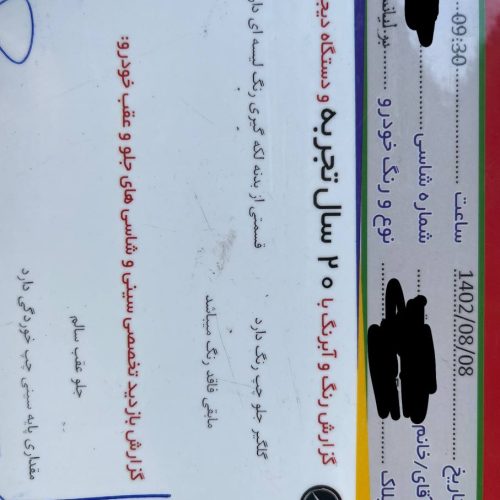 تاریخ 1402/08/08 ساعت 09:30
آقای/خانم شماره شاسی
پلاک نوع و رنگ خودرو
گزارش رنگ و آبرنگ با ۲۰ سال تجربه و دستگاه
گلگیر جلو چپ رنگ دارد قسمتی از بدنه لکه گیری رنگ لیسه ای
مابقی فاقد رنگ میباشد
گزارش بازدید تخصصی سینی و شاسی های جلو و عقب خودرو:
جلو عقب سالم
مقداری پایه سینی چپ خوردگی دارد